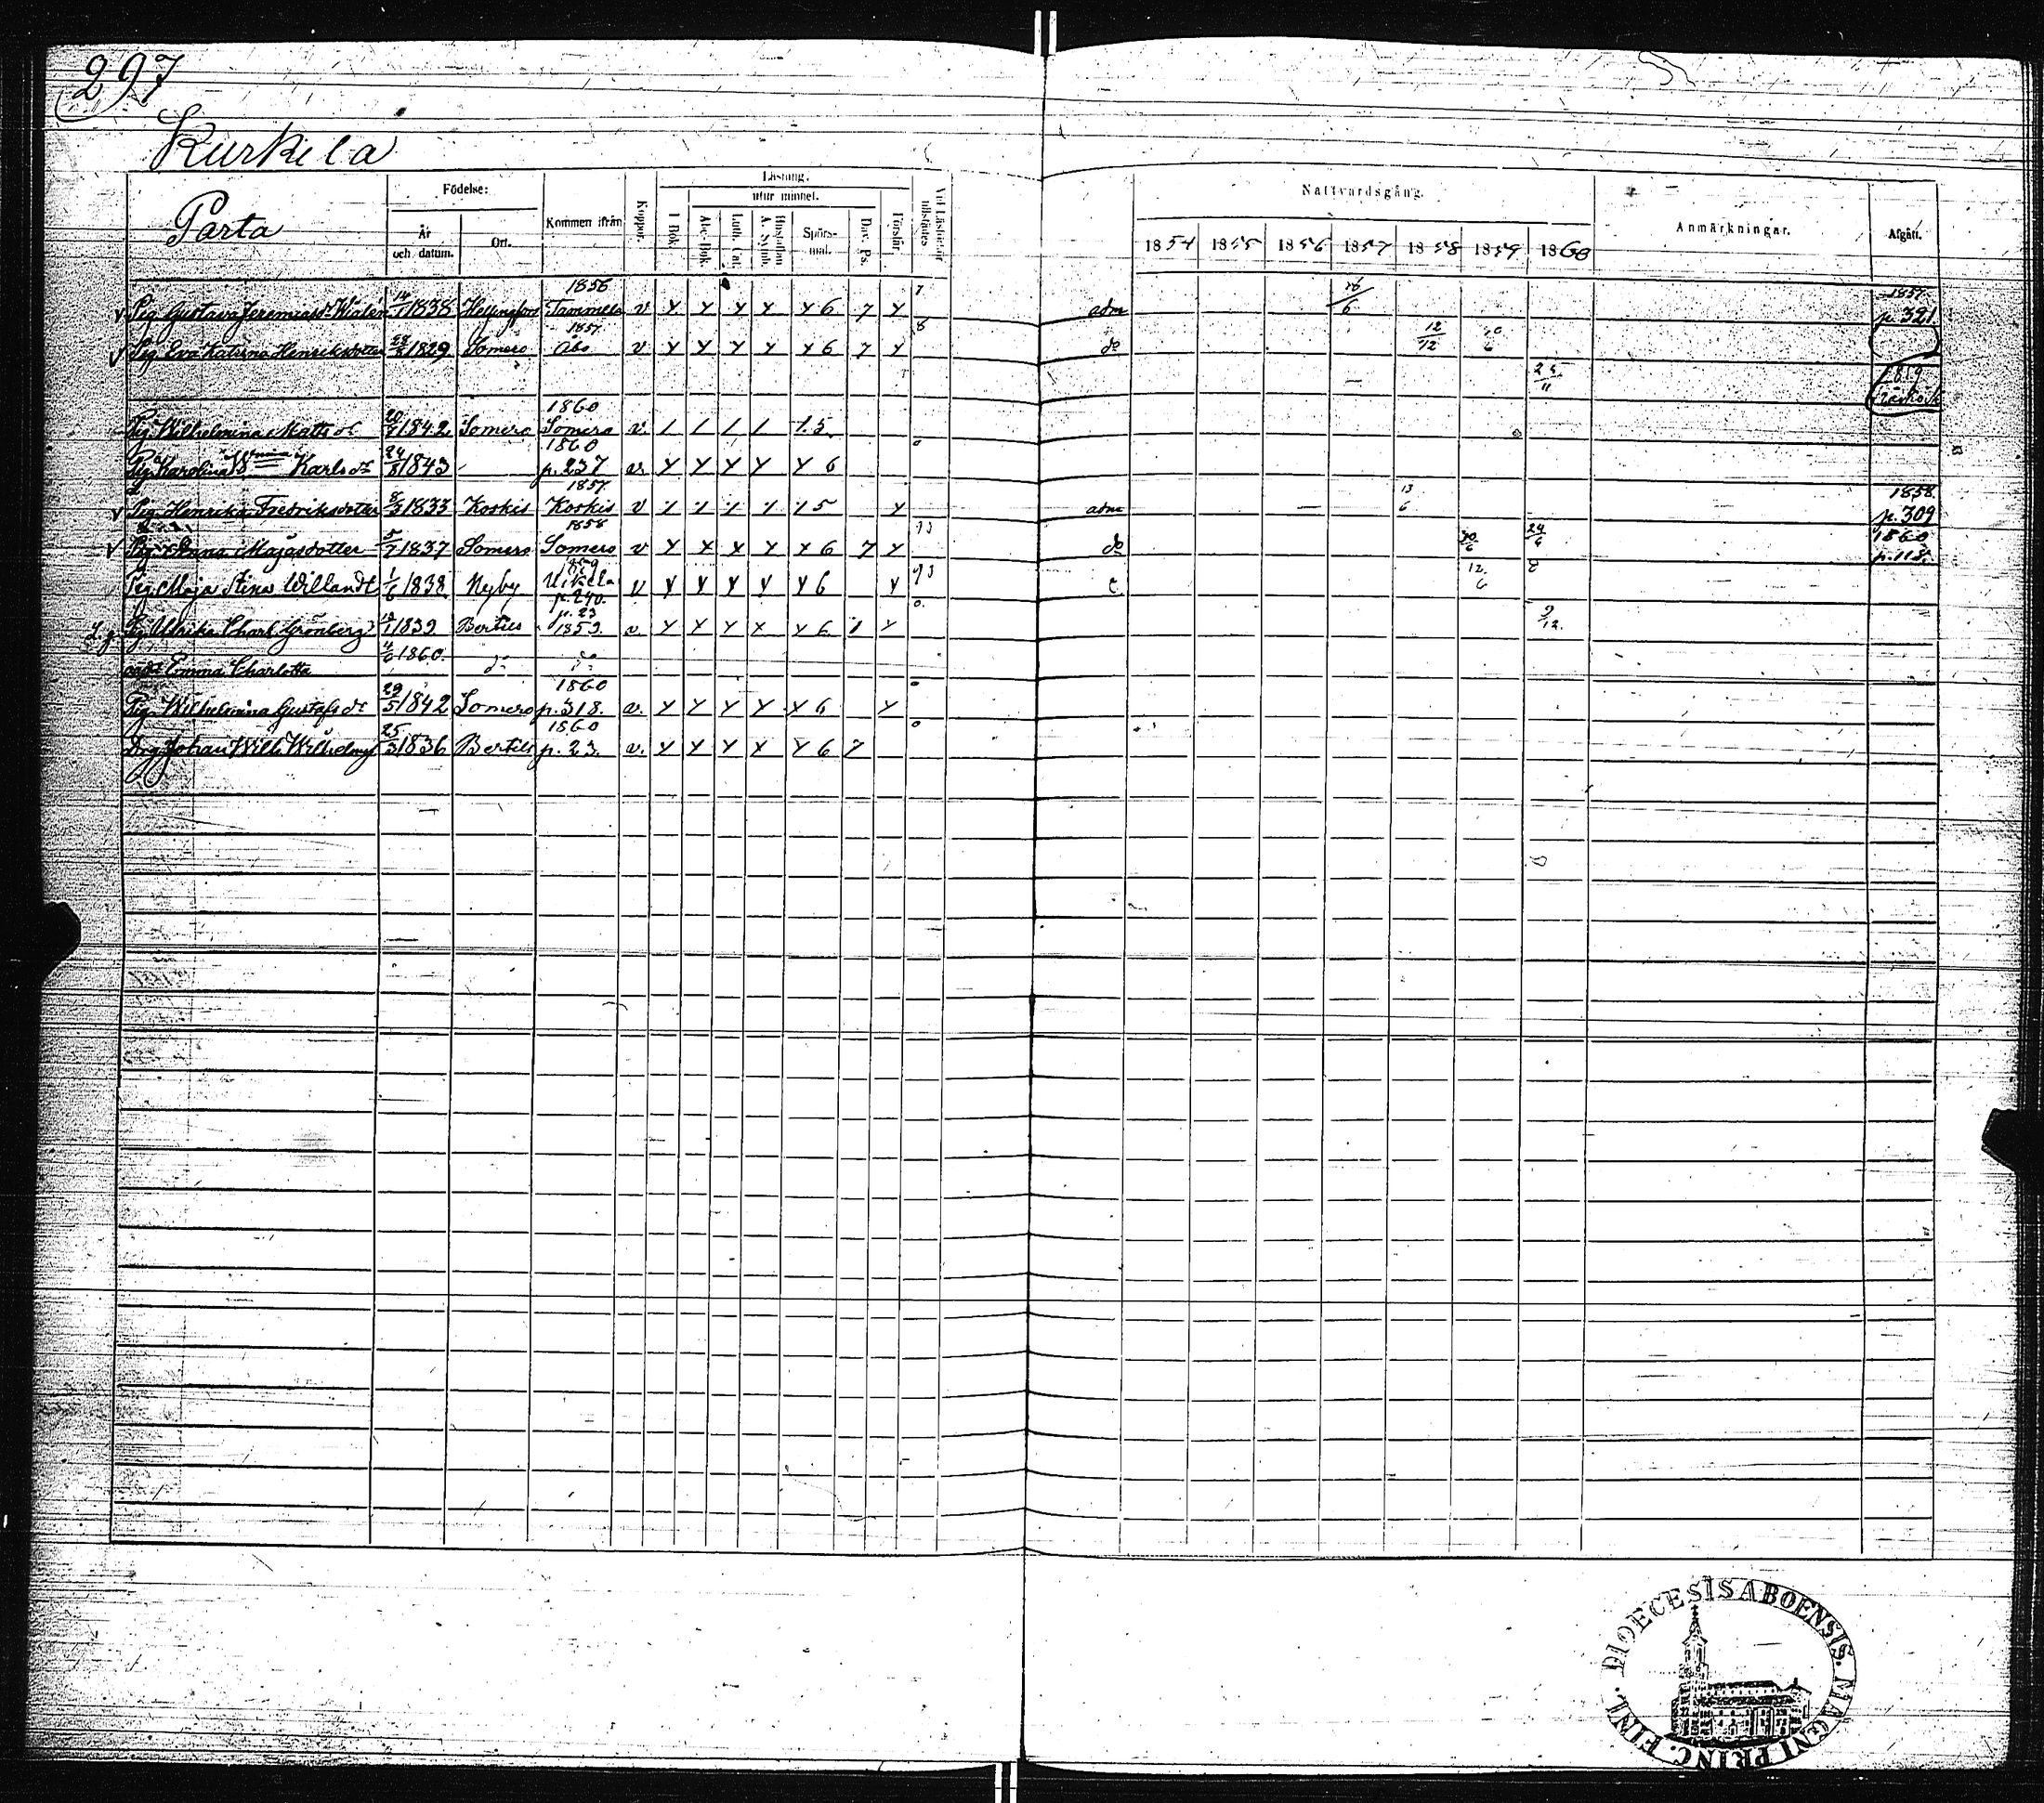 297
Kurkela
Parta
Födelse:
År och datum.
Ort.
Kommen ifrån
Koppor.
Läsning.
utur minnet.
I Bok.
Abc-Bok.
Luth. Cat.
Hustaflan A. Symb.
Spörs-mål.
Dav. Ps.
Förstår.
Vid Läsförhör tillstädes.
Nattvardsgång.
1854 1855 1856 1857 1858 1859 1860
Anmärkningar.
Afgått.
v Pig. Gustava Jeremiasdr Walén 14/1 1838 Helsingfors 1856 Tammela v y y y y y 6 7 y 7 adm 16/6 1857. p. 321
v Pig. Eva Katrina Henriksdotter 1829 Somero 1857. Åbo v y y y y y 6 7 y 8 do 12/12
25/11
Pig. Wilhelmina Matts dr 20/7 1842 Somero 1860 Somero v. / / / / 1.5
Pig. Karolina Wmina Karls dr 24/8 1843 1860 p. 237 v. y y y y y 6 0
v Pig. Henrika Fredriksdotter 8/3 1833 Koskis 1857. Koskis v 5 y adm 13/6 1858. p. 309
v Pig. Anna Majasdotter 5/7 1837 Somero 1858 Somero v y x x y y 6 7 y do 24/6 1860 p. 118.
Pig. Maja Stina Willandt 1/6 1838 Nyby p. 240. v y y y y y 6 y 12/6
Pig. Ulrika Charl. Grönberg 1839 Bertils p. 23 1859. v. y y y x y 6 y 0. 9/12.
oädr Emma Charlotta 4/6 1860. do do
Pig. Wilhelmina Gustafs dr 29/5 1842 Somero 1860 p. 318. v. y y y y y 6 y 0
Drg Johan Wilh. Wilhelmss 25/3 1836 Bertils 1860 p. 23. v. y y y x y 6 7 0
DIOECESIS ABOENSIS. MAGNI PRINC. FINL.